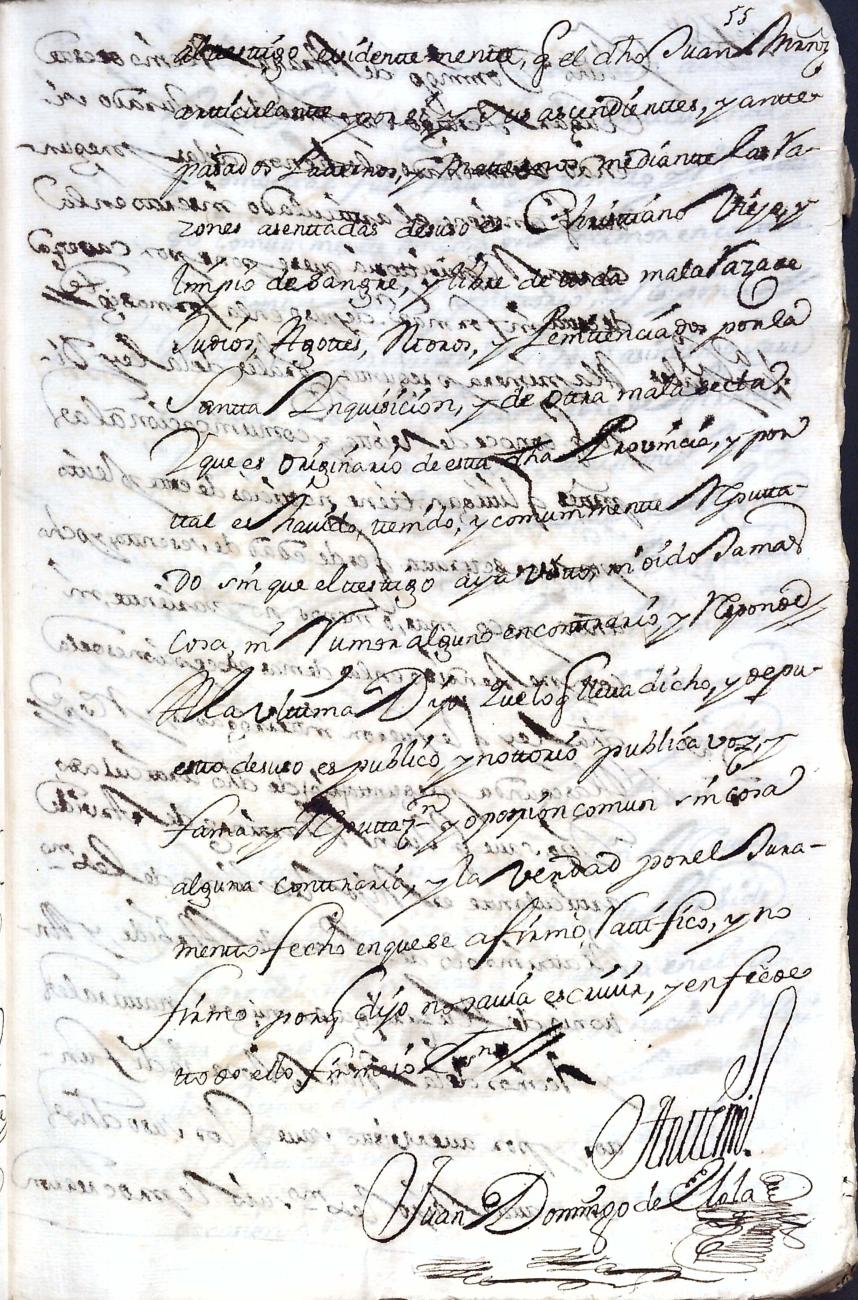 55
al testigo evidentemente, q el dho Juan Muñoz
articulante por si y sus ascendientes, y ante-
pasados Paternos, y Maternos mediante las Ra-
zones asenttadas desuso es Christtiano Viejo, y
limpio de sangre, y libre de toda mala Raza de
Judios, Agotes, Moros, y Penitenciados por la
Santta Inquisicion, y de otra mala secta,
Y que es originario de esta dha Provincia, y por
ttal es havido, ttenido, y comunmentte Reputta-
do sin que el testigo aya visto, ni oido Jamas
cosa, ni Rumor alguno en conttrario, y Responde
A la ultima Dijo Que lo q lleva dicho, y depu-
esto desuso, es publico y nottorio publica voz, y
fama, y Reputtaz.n y opinion comun sin cosa
alguna conttraria, y la verdad por el Jura-
mentto fecho en que se afirmó, Ratifico, y no
firmó porq dijo no savia escrivir, y en fee de
tto do ello firmé yo el Ess.no
Antemi
Juan Domingo de Elola